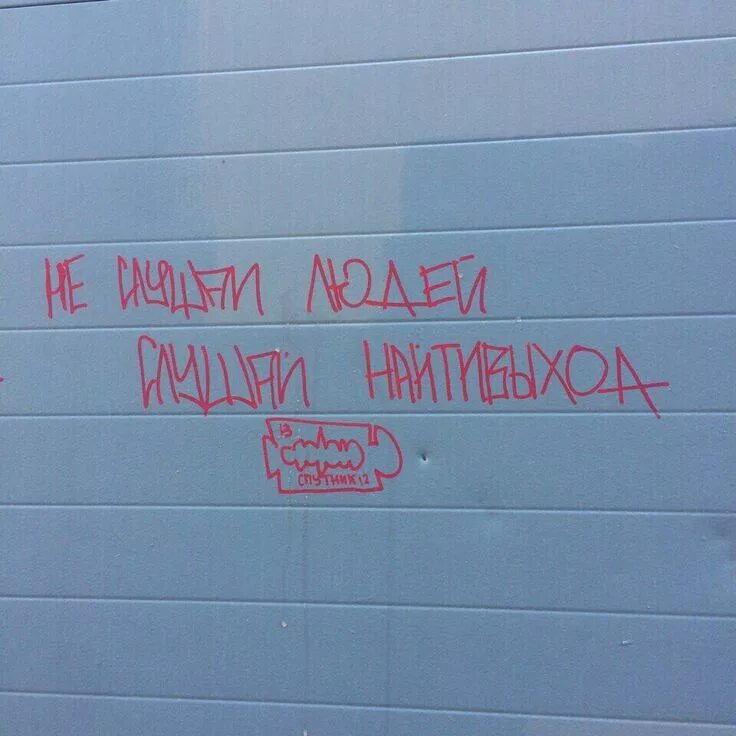 НЕ СЛУШАЙ ЛЮДЕЙ
СЛУШАЙ НАЙТИВЫХОД
13
СПУТНИК 12